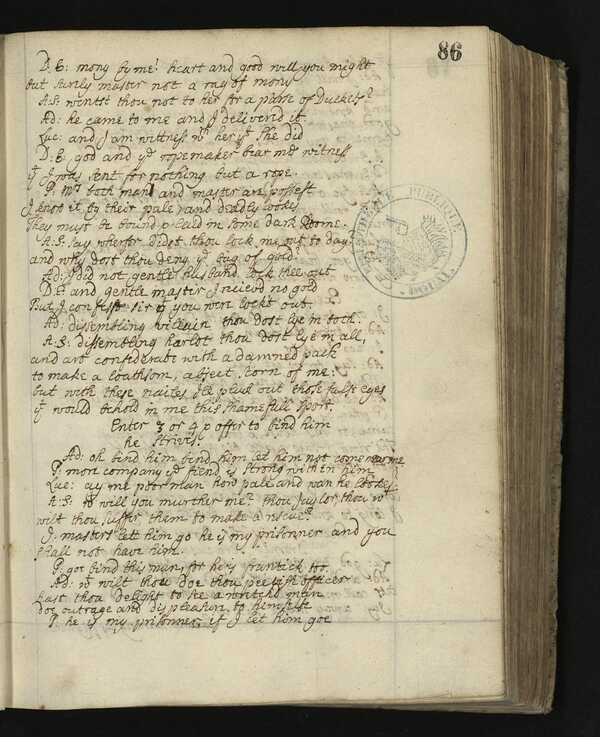 86
D: E: mony by me! heart and good will you might
but surely master not a rag of mony
A:S: wentst thou not to her for a purse of Duckets?
Ad: he came to me and I deliverd it
Luc: and I am wittness wth her yt she did
D: E: god and ye ropemaker bear me witness
yt I was sent for nothing but a rope.
P: Mrs both man and master are possest
I know it by their pale and deadly lookes
They must be bound & laid in some dark Roome.
A:S: say wherfor didst thou lock me out to day
and why dost thou deny ye bag of gold.
Ad: I did not gentle husband lock thee out
D:E: and gentle master I receivd no gold
But I confess sir yt you were lockt out.
Ad: dissembling villain thou dost lye in both.
A:S: dissembling harlot thou dost lye in all,
and art confederate with a damned pack
to make a loathsom, abject scorn of me:
but with these nailes Ile pluck out those false eyes
yt would behold in me this shamefull sport.
Enter 3 or 4 & offer to bind him
he strives.
Ad: oh bind him bind him let him not come near me
P: more company ye fiend is strong within him
Luc: ay me poor man how pale and wan he lookes.
A: S: wt will you murther me? thou Jaylor thou wt
wilt thou suffer them to make a rescue?
J: masters lett him go he is my prisonner and you
shall not have him.
P: goe bind this man, for he's frantick too.
Ad: wt wilt thou doe thou peevish officer
hast thou delight to see a wretchd man
doe outrage and displeasur to himself
J: he is my prisonner; if I let him goe
BIBLIOTHEQUE PUBLIQUE